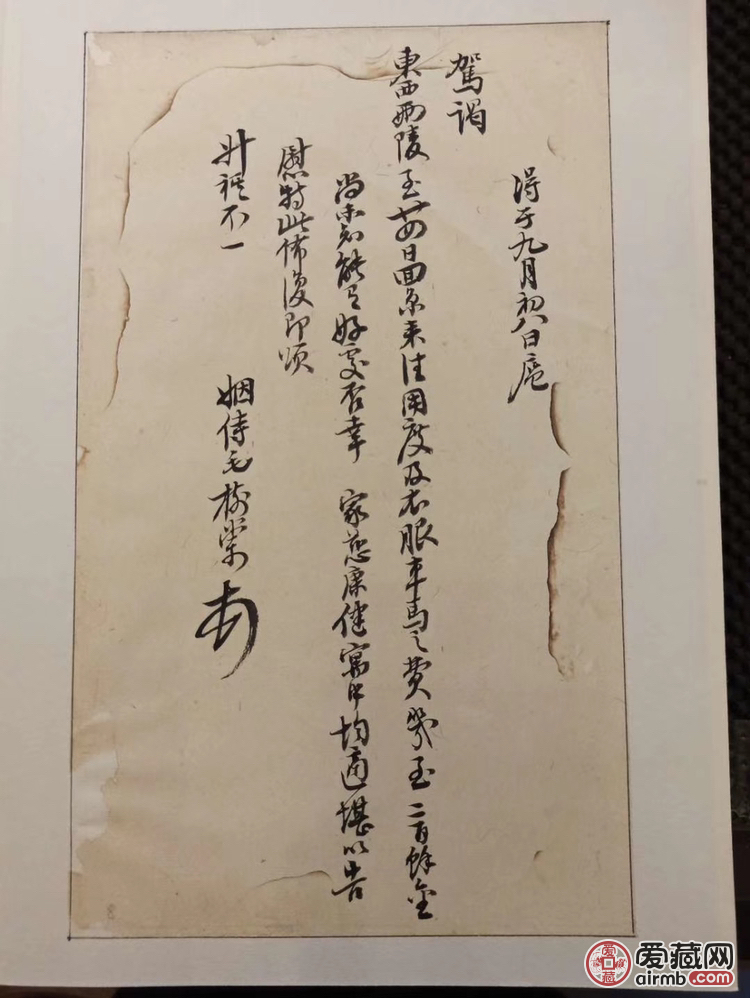 得于九月初八日扈
駕謁
東西兩陵至廿四日回京来往用度及衣服車馬之費幾至二百餘金
尚未知能有好處否幸 家慈康健寓中均適堪以告
慰特此佈復即頌
升祺不一
姻侍毛樹棠
爱藏网
airmb.com